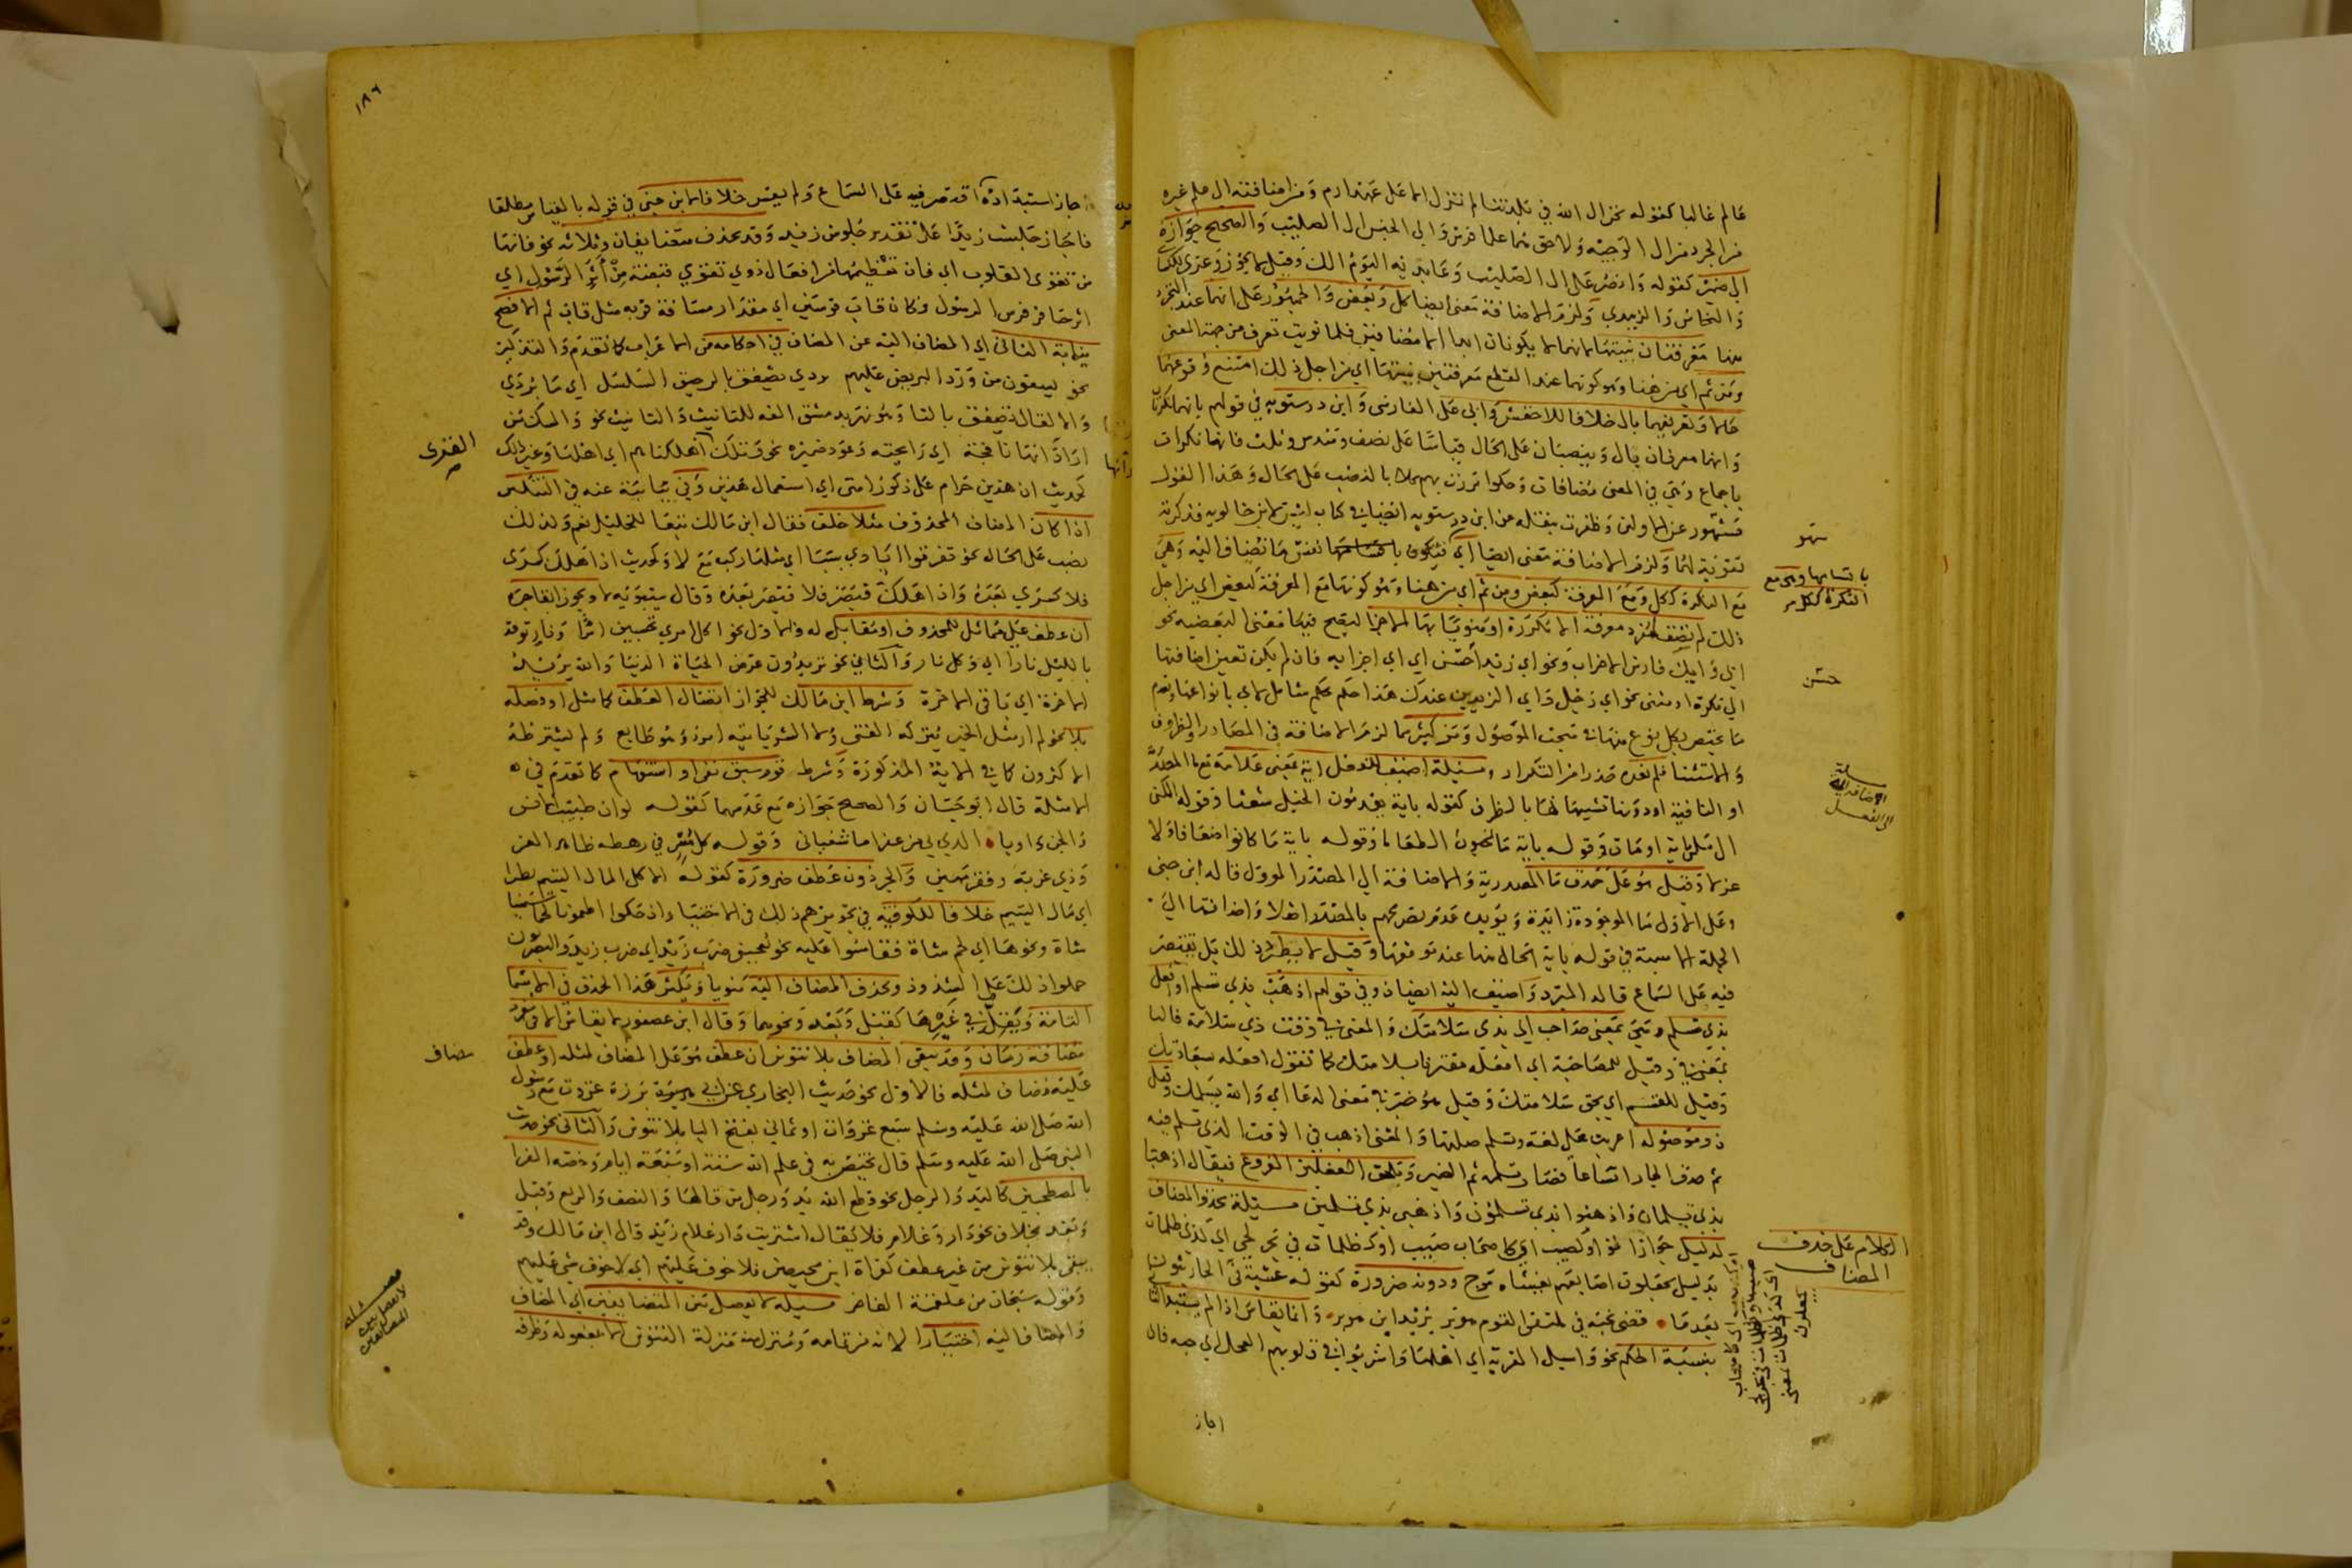 عالم غالبا كقوله نحن ال الله في بلدتنا لم نزل الا على عهد ارم ومن اضافته الى علم غيره
من الجرد من ال الوجيه ولاحق هما علما فرس والى الجنس ال الصليب والصحيح جوازه
الى ضمير كقوله وانصر على ال الصليب وعابديه اليوم الك وقيل لا يجوز وعزى للكسائي
والنحاس والزبيدي ولزم الاضافة معنى ايضا كل وبعض والجمهور على انهما عند التجرد
منها معرفتان بنيتها لانهما لا يكونان ابدا الا مضافين فلما نويت تعرفا من جهة المعنى
ومن ثم اي من هنا وهو كونهما عند القطع معرفتين بنيتها اي من اجل ذلك امتنع وقوعهما
حالا وتعريفهما بال خلافا للاخفش وابي علي الفارسي وابن درستويه في قولهم بانهما نكرتان
وانهما معرفان بال وينصبان على الحال قياسا على نصف وسدس وثلث فانها نكرات
باجماع وهي في المعنى مضافات وحكوا مررت بهم كلا بالنصب على الحال وهذا القول
مشهور عن الاولين وظفرت بنقله عن ابن درستويه ايضا في كتاب ليس لابن خالويه فذكرته
تقوية لهما ولزم الاضافة معنى ايضا اي فيكون نفس ما تضاف اليه وهي
مع النكرة ككل ومع المعرفة كبعض ومن ثم اي من هنا وهو كونها مع المعرفة كبعض اي من اجل
ذلك لم تضف لمفرد معرفة الا مكررة او منويا بها الاجزا ليصح فيها معنى البعضية نحو
ايي وايك فارس الاحزاب ونحو اي زيد احسن اي اي اجزايه فان لم يكن تعين اضافتها
الى نكرة او مثنى نحو اي رجل واي الزيدين عندك هذا حكم شامل لاي بانواعها وتقدم
ما يختص بكل نوع منها في مبحث الموصول ومر كثير مما لزم الاضافة في المصادر والظروف
والاستثنا فلم نعده حذرا من التكرار مسئلة اضيف للفعل اية بمعنى علامة مع ما المصدرية
او النافية او دونها تشبيها لها بالظرف كقوله باية يقدمون الخيل شعثا وقوله الكنى
الى سلمى باية اومات وقوله باية ما تحبون الطعاما وقوله باية ما كانوا ضعافا ولا
عزلا وقيل هو على حذف ما المصدرية والاضافة الى المصدر المؤول قاله ابن جني
وعلى الاول ما الموجودة زائدة ويؤيده عدم تصريحهم بالمصدر اصلا واضافتها الى
الجملة الاسمية في قوله باية الخال منها عند موقفها وقيل لا يطرد ذلك بل يقتصر
فيه على السماع قاله المبرد واضيف اليه ايضا ذو في قولهم اذهب بذي تسلم او افعل
بذي تسلم وهي بمعنى صاحب اي بذي سلامتك والمعنى في وقت ذي سلامة فالبا
بمعنى في وقيل للمصاحبة اي افعله مقترنا بسلامتك كما تقول افعله بسعادتك
وقيل للقسم اي بحق سلامتك وقيل هو خبر في معنى الدعا اي والله يسلمك وقيل
ذو موصولة اعربت على لغة وتسلم صلتها والمعنى اذهب في الوقت الذي تسلم فيه
ثم حذف الجار اتساعا فصار تسلمه ثم الضمير وتلحق الفعلين الفروع فيقال اذهبا
بذي تسلمان واذهبوا بذي تسلمون واذهبي بذي تسلمين مسئلة يحذف المضاف
لدليل جوازا نحو او كصيب اي كاصحاب صيب او كظلمات في بحر لجي اي كذي ظلمات
بدليل يجعلون اصابعهم يغشاه موج ودونه ضرورة كقوله عشية فر الحارثيون
بعدما قضى نحبه في ملتقى القوم هوبر يريد ابن هوبر وانما يقاس اذا لم يستبد الثاني
بنسبة الحكم نحو واسال القرية اي اهلها واشربوا في قلوبهم العجل اي حبه فان
اجاز
سهو
حسن
مسئلة
الكلام على حذف
المضاف
١٨٦
جاز استبداده اقتصر فيه على السماع ولم يقس خلافا لابن جني في قوله بالقياس مطلقا
فاجاز جلست زيدا على تقدير جلوس زيد وقد يحذف متضايفان وثلاثة نحو فانها
من تقوى القلوب اي فان تعظيمها من افعال ذوي تقوى قبضة من اثر الرسول اي
اثر حافر فرس الرسول وكان قاب قوسين اي مقدار مسافة قربه مثل قاب ثم الافصح
نيابة الثاني اي المضاف اليه عن المضاف في احكامه من الاعراب كما تقدم والتذكير
نحو يسقون من ورد البريص عليهم بردى يصفق بالرحيق السلسل اي ما بردى
والا لقال تصفق بالتا وهو نهر بدمشق الفه للتانيث والتانيث نحو والمسك من
اردانها نافجة اي رائحته وعود ضميره نحو وتلك القرى اهلكناهم اي اهلها وغير ذلك
كحديث ان هذين حرام على ذكور امتي اي استعمال هذين وفي نيابته عنه في التنكير
اذا كان المضاف المحذوف مثلا خلف فقال ابن مالك تبعا للخليل نعم ولذلك
نصب على الحال نحو تفرقوا ايادي سبا اي مثلها ركب مع لا كحديث اذا هلك كسرى
فلا كسرى بعده واذا هلك قيصر فلا قيصر بعده وقال سيبويه لا ويجوز ابقا جره
ان عطف على مماثل للمحذوف او مقابل له والاول نحو اكل امري تحسبين امرا ونار توقد
بالليل نارا اي وكل نار والثاني نحو تريدون عرض الحياة الدنيا والله يريد
الاخرة اي باقي الاخرة وشرط ابن مالك للجواز اتصال العطف كما مثل او فصله
بلا نحو لم ار مثل الخير يتركه الفتى ولا الشر ياتيه امرؤ وهو طايع ولم يشترطه
الاكثرون كما في الاية المذكورة وشرط قوم سبق نفي او استفهام كما تقدم في
الامثلة قال ابو حيان والصحيح جوازه مع عدمهما كقوله لو ان طبيب الانس
والجن داويا الذي بي من عفرا ما شفياني وقوله كل مثر في رهطه ظاهر العز
وذي غربة وفقر مهين والجر دون عطف ضرورة كقوله الاكل المال اليتيم بطرا
اي مال اليتيم خلافا للكوفية في تجويزهم ذلك في الاختيار اذ حكوا اطعمونا لحما سمينا
شاة ونحوها اي لحم شاة فقاسوا عليه نحو يعجبني ضرب زيد اي ضرب زيد والبصريون
حملوا ذلك على الشذوذ ويحذف المضاف اليه منويا ويكثر هذا الحذف في الاسما
التامة ويقل في غيرها كقبل وبعد ونحوهما وقال ابن عصفور لا يقاس الا في مفرد
مضافه زمان وقد يبقى المضاف بلا تنوين ان عطف هو على المضاف لمثله او عطف
عليه مضاف لمثله فالاول نحو حديث البخاري عن ابي برزة غزوت مع رسول
الله صلى الله عليه وسلم سبع غزوات او ثماني بفتح اليا بلا تنوين والثاني نحو حديث
النبي صلى الله عليه وسلم قال تحتضر به في علم الله ستة او سبعة ايام وخصه الفرا
بالمصطحبين كاليد والرجل نحو قطع الله يد ورجل من قالها والنصف والربع وقبل
وبعد بخلاف نحو دار وغلام فلا يقال اشتريت دار غلام زيد قال ابن مالك وقد
يبقى بلا تنوين من غير عطف كقراة ابن محيصن فلا خوف عليهم اي لا خوف شي عليهم
وقوله سبحان من علقمة الفاخر مسيلة لا يفصل بين المتضايفين اي المضاف
والمضاف اليه اختيارا لانه من تمامه ومنزل منه منزلة التنوين الا بمفعوله وظرفه
القرى
مضاف
مسئلة
لا يفصل بين
المتضايفين